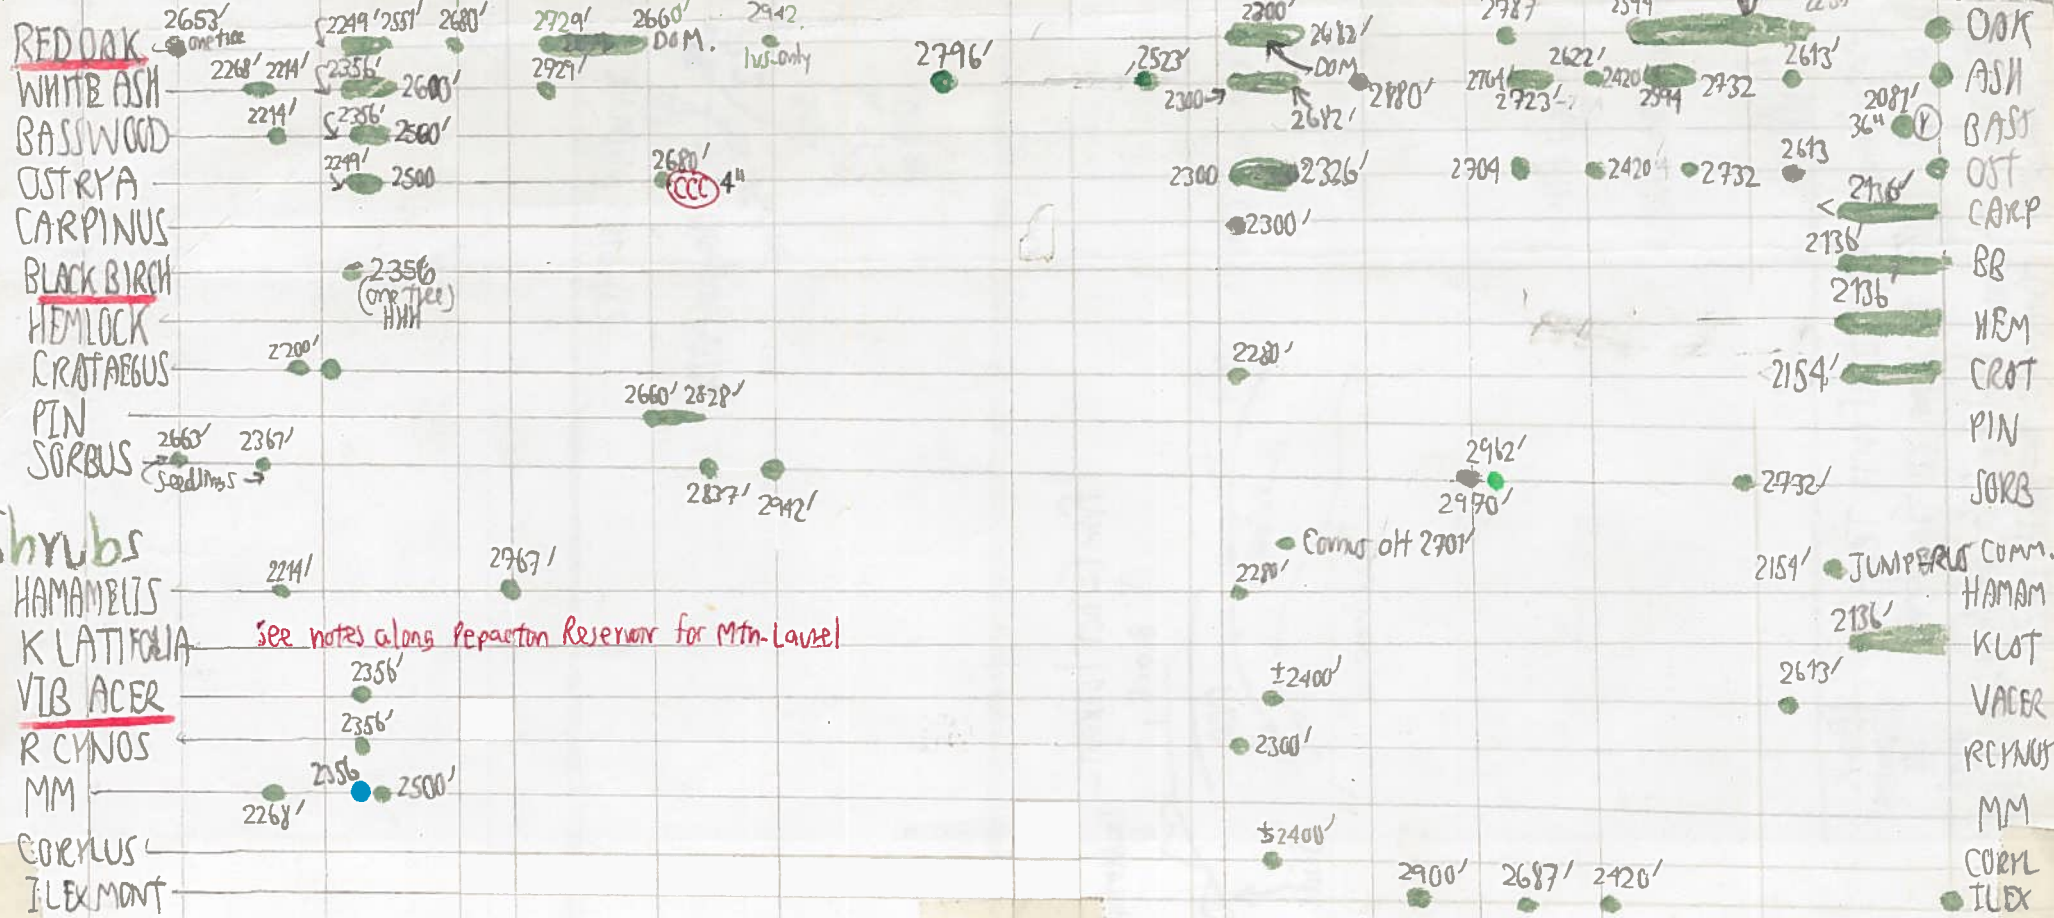 2653' 2249' 2551' 2680' 2729' 2660' 2942' 2300' 2787
RED OAK one tree DOM. lvs. only 2796' 2523' 2482' OAK
WHITE ASH 2268' 2214' 2356' 2600' 2929' 2300 DOM 2682' 2704 2723' 2622' 2420 2594 2732 2613' ASH
BASSWOOD 2214' 2356' 2500' 2081' 36" BASS
OSTRYA 2249' 2500 2680' CCC 4" 2300 2326' 2704 2420 2732 2613 OST
CARPINUS 2300' 2136' CARP
BLACK BIRCH 2356 (one tree) HHH 2136' BB
HEMLOCK 2136' HEM
CRATAEGUS 2200' 2280' 2154' CRAT
PIN 2660' 2828' PIN
SORBUS 2663' 2367' seedlings 2837' 2942' 2962' 2970' 2732' SORB
Shrubs Cornus alt 2701' 2154' JUNIPERUS COMM.
HAMAMELIS 2214' 2767' 2280' HAMAM
K LATIFOLIA See notes along Pepacton Reservoir for Mtn-Laurel 2136' KLAT
VIB ACER 2356' ±2400' 2613' VACER
R CYNOS 2356' 2300' RCYNOS
MM 2268' 2356 2500' MM
CORYLUS ±2400' CORYL
ILEX MONT 2900' 2687' 2420' ILEX